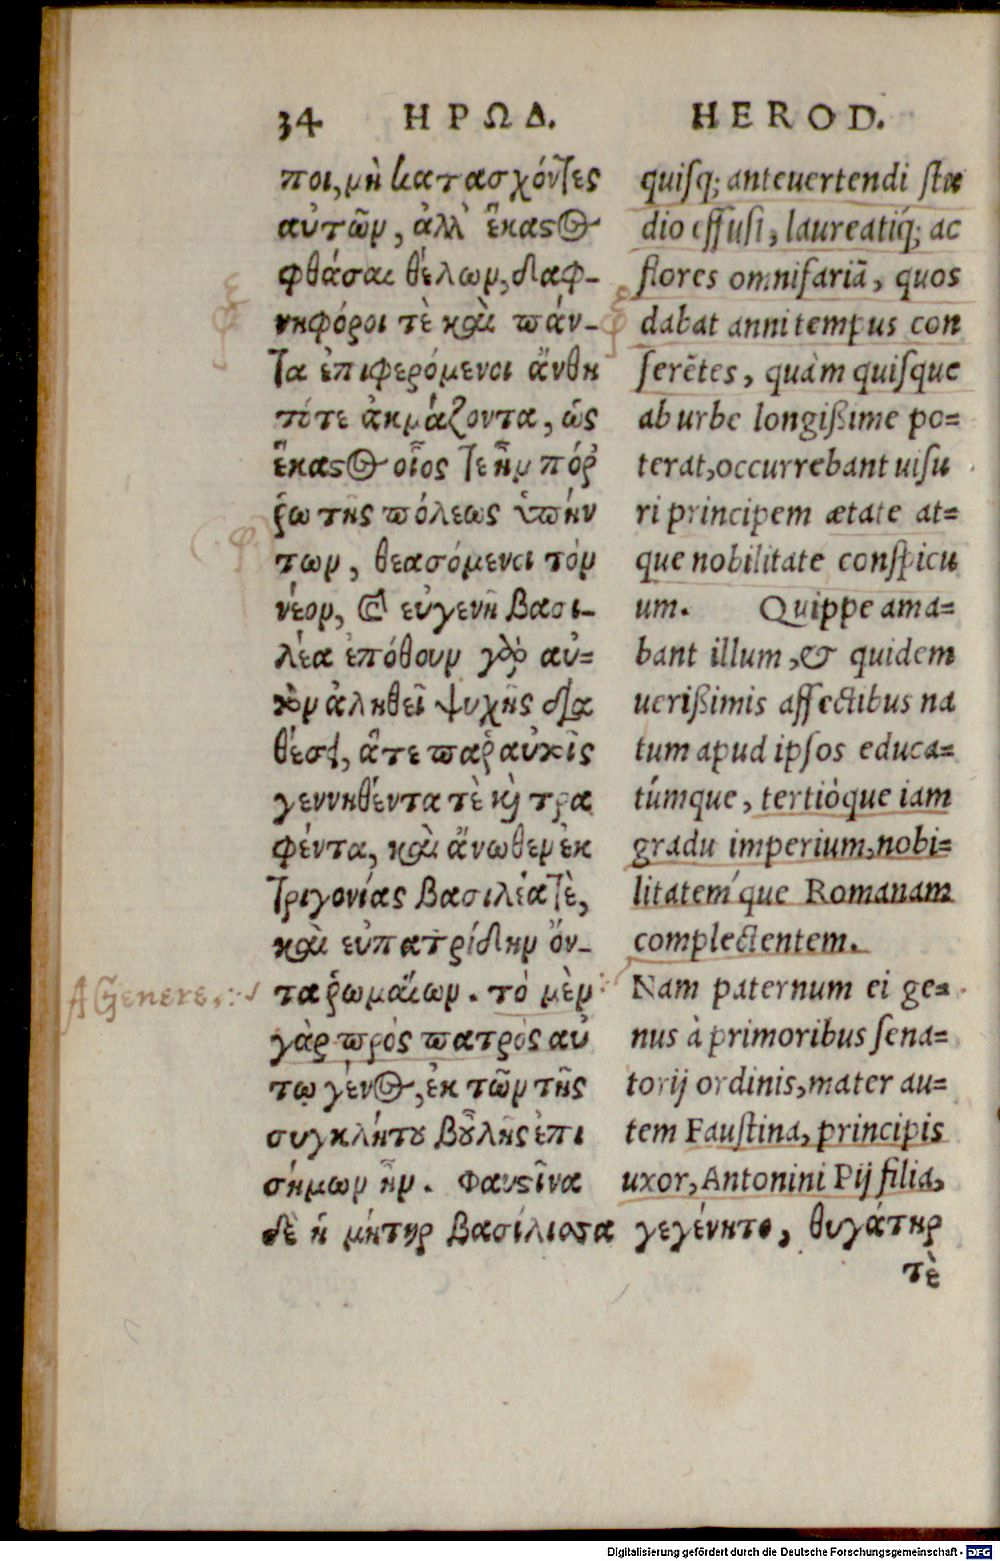 34 ΗΡΩΔ. HEROD.
ποι, μὴ κατασχόντες
αὑτῶν, ἀλλ' ἕκαστος
φθάσαι θέλων, δαφ-
νηφόροι τὲ καὶ πάν-
τα ἐπιφερόμενοι ἄνθη
τότε ἀκμάζοντα, ὡς
ἕκαστος οἷος τε ἦν πόρ
ῥω τῆς πόλεως ὑπήν
των, θεασόμενοι τὸν
νέον, καὶ εὐγενῆ βασι-
λέα ἐπόθουν γὰρ αὐ-
τὸν ἀληθεῖ ψυχῆς δια
θέσει, ἅτε παρ' αὐτοῖς
γεννηθέντα τὲ καὶ τρα
φέντα, καὶ ἄνωθεν ἐκ
τριγονίας βασιλέα τὲ,
καὶ εὐπατρίδην ὄν-
τα ῥωμαίων. τὸ μὲν
γὰρ πρὸς πατρὸς αὐ
τῳ γένος, ἐκ τῶν τῆς
συγκλήτου βουλῆς ἐπι
σήμων ἦν. Φαυστῖνα
δὲ ἡ μήτηρ βασίλισσα γεγένητο, θυγάτηρ
τὲ
quisq; anteuertendi stu
dio effusi, laureatiq́; ac
flores omnifariā, quos
dabat anni tempus con
ferētes, quàm quisque
ab urbe longißime po=
terat, occurrebant uisu
ri principem ætate at=
que nobilitate conspicu
um. Quippe ama=
bant illum, & quidem
uerißimis affectibus na
tum apud ipsos educa=
túmque, tertióque iam
gradu imperium, nobi=
litateḿque Romanam
complectentem.
Nam paternum ei ge=
nus à primoribus sena=
torij ordinis, mater au=
tem Faustina, principis
uxor, Antonini Pij filia,
A Genere,
Digitalisierung gefördert durch die Deutsche Forschungsgemeinschaft - DFG